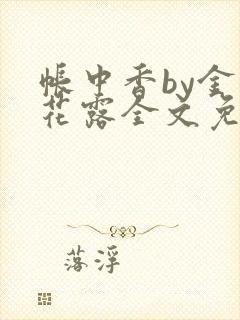 帐中香by金
花露全文免
落浮